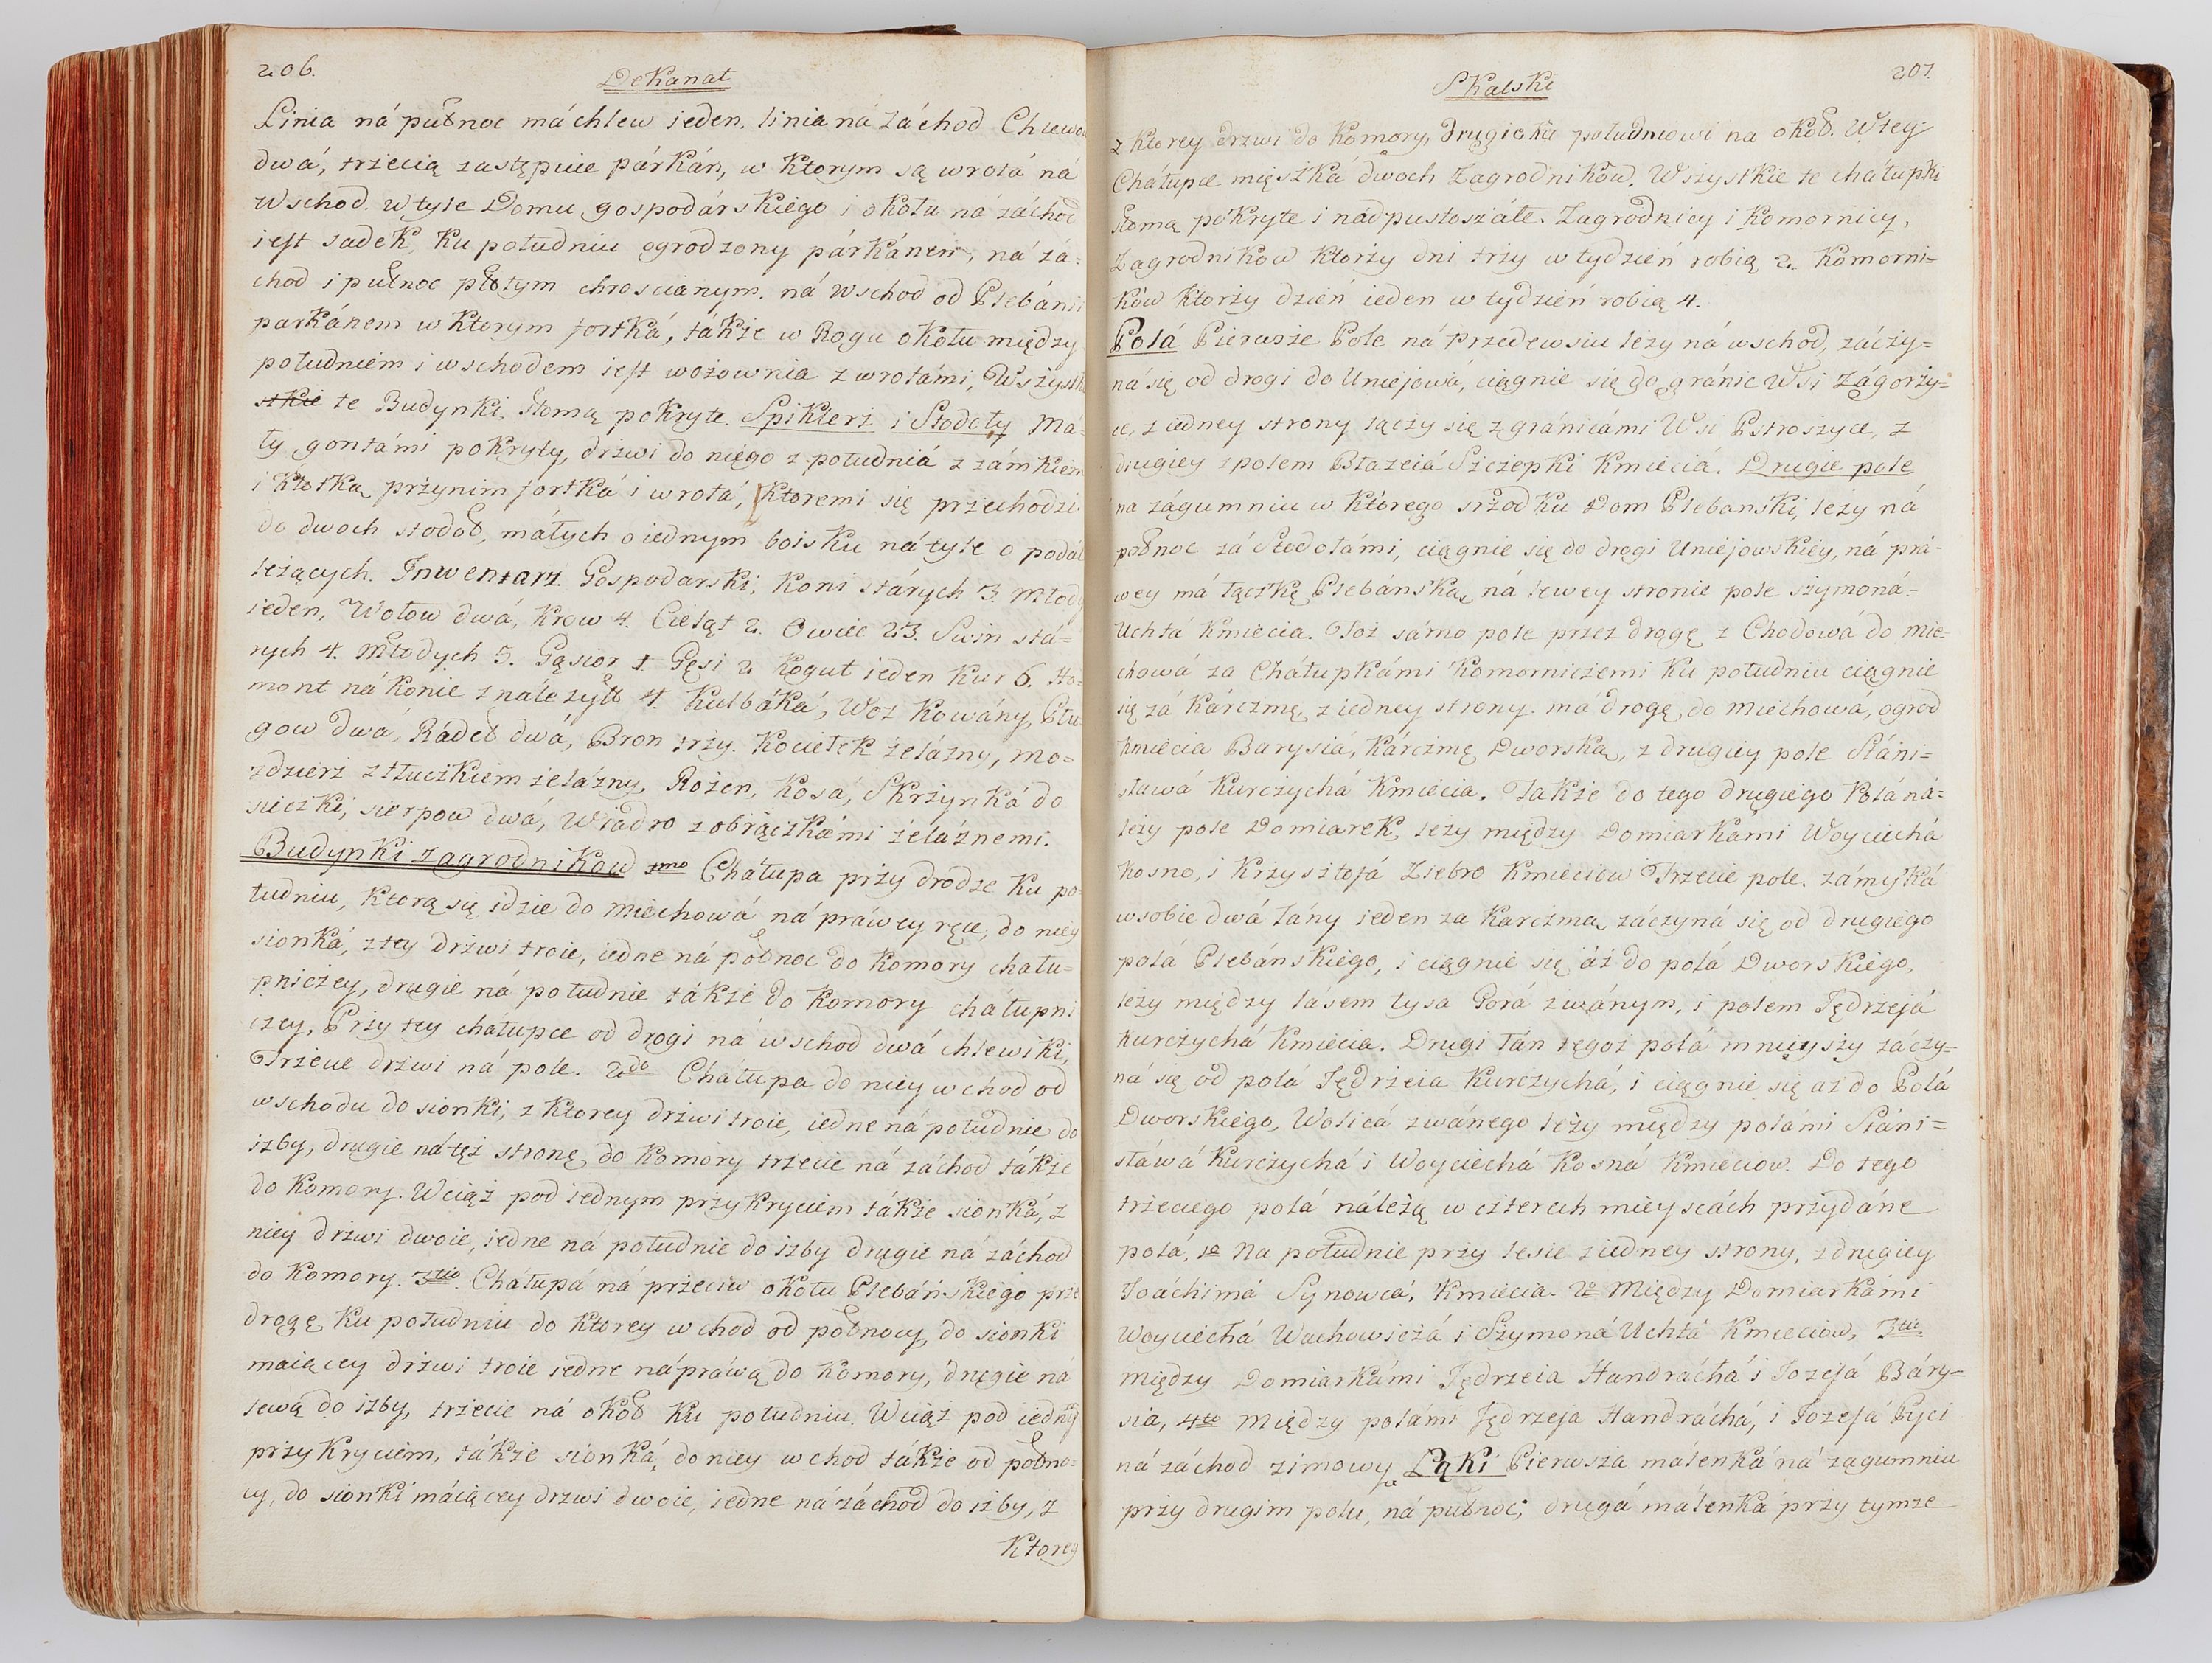 206.
Dekanat
Linia ná pułnoc má chlew ieden. linia ná záchod Chlewo
dwá, trzecią zastępuie párkán, w ktorym są wrotá ná
Wschod. w tyle Domu gospodárskiego i okołu ná záchod
iest sadek ku południu ogrodzony párkánem, ná zá=
chod i pułnoc płotym chroscianym. ná wschod od Plebánii
parkánem w ktorym fortká, tákże w Rogu okołu między
południem i wschodem iest wożownia z wrotámi, Wszystk
stkie te Budynki słomą pokryte. Spiklerz i Stodoły Má=
ły gontámi pokryty, drzwi do niego z południá z zámkiem
i kłotką przynim fortká i wrotá, ktoremi się przechodzi
do dwoch stodoł, máłych o iednym boisku ná tyle o podal
leżących. Inwentarz Gospodarski, Koni stárych 3. Młody
ieden, Wołow dwá, Krow 4. Cieląt 2. Owiec 23. Swin stá=
rych 4. Młodych 5. Gąsior 1. Gęsi 2. Kogut ieden Kur 6. Ho=
mont ná konie z nalezyło 4. Kulbáká, Woz kowány, Płu=
gow dwá, Radeł dwá, Bron trzy. Kociełek żelázny, mo=
zdzierz z tłuczkiem żelázny, Rożen, Kosá, Skrzynká do
sieczki, sierpow dwá, Wiadro z obrączkámi żeláznemi.
Budynki zagrodnikow 1mo Cháłupa przy drodze ku po=
łudniu, ktorą się idzie do miechowá ná práwey ręce, do niey
sionká, z tey drzwi troie, iedne ná połnoc do Komory chału=
pniczey, drugie ná południe tákże do Komory cháłupni
czey, Przy tey chałupce od drogi ná wschod dwá chlewiki,
Trzecie drzwi ná pole. 2do Cháłupa do niey wchod od
wschodu do sionki, z ktorey drzwi troie, iedne ná południe do
izby, drugie ná tęż stronę do Komory trzecie ná záchod tákże
do Komory. Wciąż pod iednym przykryciem tákże sionká, z
niey drzwi dwoie, iedne ná południe do izby drugie ná záchod
do Komory. 3tio Cháłupá ná przeciw okołu Plebáńskiego prze
drogę ku południu do ktorey wchod od połnocy do sionki
maiącey drzwi troie iedne ná práwą do Komory, drugie ná
lewą do izby, trzecie ná okoł ku południu. Wciąż pod iedny
przykryciem, tákże sionká, do niey wchod tákże od połno=
cy, do sionki máiącey drzwi dwoie, iedne ná záchod do izby, z
Ktorey
207.
Skalski
z ktorey drzwi do komory, drugie ku południowi na okoł. W tey
Cháłupce mięszká dwoch Zagrodnikow. Wszystkie te cháłupki
słomą pokryte i nádpustoszáłe. Zagrodnicy i Komornicy,
Zagrodnikow ktorzy dni trzy w tydzień robią 2. Komorni=
ków ktorzy dzień ieden w tydzień robią 4.
Polá Pierwsze Pole ná przedewsiu leży ná wschod, záczy=
ná się od drogi do Uniejowá, ciągnie się do gránic Wsi Zágorzy=
ce, z iedney strony łączy się z gránicámi Wsi Pstroszyce, z
drugiey z polem Błazeiá Szczepki kmieciá. Drugie pole
na zágumniu w ktorego srzodku Dom Plebanski, leży ná
połnoc zá Stodołámi, ciągnie się do drogi Uniejowskiey, ná prá=
wey má łączkę Plebánską, ná lewey stronie pole szymoná=
Uchtá kmiecia. Toż sámo pole przez drogę z Chodowá do mie=
chowá za Cháłupkámi komorniczemi ku południu ciągnie
się zá kárczmę z iedney strony má drogę do miechowá, ogrod
kmiecia Barysiá, kárczmę Dworską, z drugiey pole Stáni=
sławá kurczychá kmiecia. Także do tego drugiego Polá ná=
leży pole Domiarek, leży między Domiarkámi Woyciechá
kosno, i krzysztofá Ziebro kmieciow Trzecie pole. zámyká
w sobie dwá łány ieden za karczmą záczyná się od drugiego
polá Plebánskiego, i ciągnie się áż do polá Dworskiego,
leży między lásem łysa Gorá zwánym, i polem Jędrzejá
kurczychá kmiecia. Drugi łán tegoż polá mnieyszy záczy=
ná się od polá Jędrzeia kurczychá, i ciągnie się aż do Polá
Dworskiego, Wolicá zwánego leży między polámi Stáni=
sławá kurczychá i Woyciechá kosná kmieciow. Do tego
trzeciego polá náleżą w czterech mieyscách przydáne
polá, 1o Na południe przy lesie z iedney strony, z drugiey
Joáchimá Synowcá, kmiecia. 2o Między Domiarkámi
Woyciechá Wachowiczá i Szymoná Uchtá kmieciow, 3tio
między Domiarkámi Jędrzeia Handráchá i Jozefá Báry=
sia, 4to między polámi Jędrzeja Handráchá, i Jozefá Pyci
ná zachod zimowy. Łąki Pierwsza máleńká ná zágumniu
przy drugim polu, ná pułnoc, drugá máleńká przy tymże